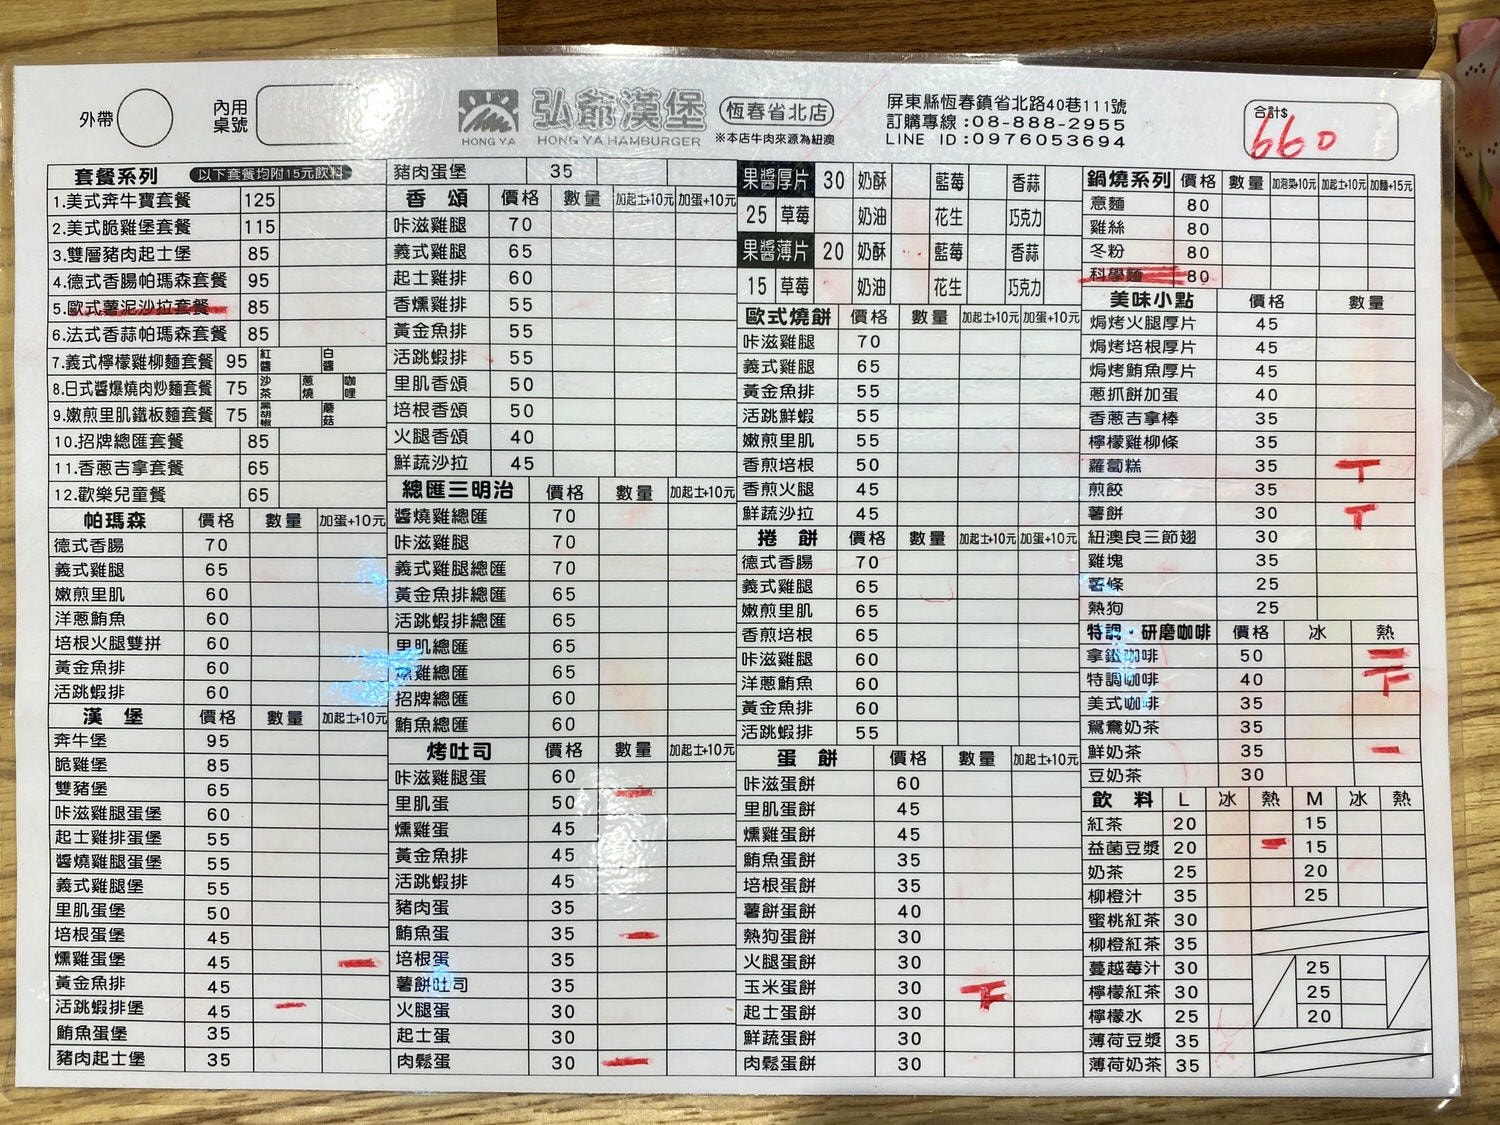 外帶
內用桌號
HONG YA
弘爺漢堡
HONG YA HAMBURGER
恆春省北店
※本店牛肉來源為紐澳
屏東縣恆春鎮省北路40巷111號
訂購專線:08-888-2955
LINE ID:0976053694
合計$
660
套餐系列 以下套餐均附15元飲料
1.美式奔牛寶套餐 125
2.美式脆雞堡套餐 115
3.雙層豬肉起士堡 85
4.德式香腸帕瑪森套餐 95
5.歐式薯泥沙拉套餐 85
6.法式香蒜帕瑪森套餐 85
7.義式檸檬雞柳麵套餐 95 紅醬 白醬
8.日式醬爆燒肉炒麵套餐 75 沙茶 蔥燒 咖哩
9.嫩煎里肌鐵板麵套餐 75 黑胡椒 蘑菇
10.招牌總匯套餐 85
11.香蔥吉拿套餐 65
12.歡樂兒童餐 65
帕瑪森 價格 數量 加蛋+10元
德式香腸 70
義式雞腿 65
嫩煎里肌 60
洋蔥鮪魚 60
培根火腿雙拼 60
黃金魚排 60
活跳蝦排 60
漢堡 價格 數量 加起士+10元
奔牛堡 95
脆雞堡 85
雙豬堡 65
咔滋雞腿蛋堡 60
起士雞排蛋堡 55
醬燒雞腿蛋堡 55
義式雞腿堡 55
里肌蛋堡 50
培根蛋堡 45
燻雞蛋堡 45
黃金魚排 45
活跳蝦排堡 45
鮪魚蛋堡 35
豬肉起士堡 35
豬肉蛋堡 35
香頌 價格 數量 加起士+10元 加蛋+10元
咔滋雞腿 70
義式雞腿 65
起士雞排 60
香燻雞排 55
黃金魚排 55
活跳蝦排 55
里肌香頌 50
培根香頌 50
火腿香頌 40
鮮蔬沙拉 45
總匯三明治 價格 數量 加起士+10元
醬燒雞總匯 70
咔滋雞腿 70
義式雞腿總匯 70
黃金魚排總匯 65
活跳蝦排總匯 65
里肌總匯 65
燻雞總匯 65
招牌總匯 60
鮪魚總匯 60
烤吐司 價格 數量 加起士+10元
咔滋雞腿蛋 60
里肌蛋 50
燻雞蛋 45
黃金魚排 45
活跳蝦排 45
豬肉蛋 35
鮪魚蛋 35
培根蛋 35
薯餅吐司 35
火腿蛋 30
起士蛋 30
肉鬆蛋 30
果醬厚片 30 奶酥 藍莓 香蒜
25 草莓 奶油 花生 巧克力
果醬薄片 20 奶酥 藍莓 香蒜
15 草莓 奶油 花生 巧克力
歐式燒餅 價格 數量 加起士+10元 加蛋+10元
咔滋雞腿 70
義式雞腿 65
黃金魚排 55
活跳鮮蝦 55
嫩煎里肌 55
香煎培根 50
香煎火腿 45
鮮蔬沙拉 45
捲餅 價格 數量 加起士+10元 加蛋+10元
德式香腸 70
義式雞腿 65
嫩煎里肌 65
香煎培根 65
咔滋雞腿 60
洋蔥鮪魚 60
黃金魚排 60
活跳蝦排 55
蛋餅 價格 數量 加起士+10元
咔滋蛋餅 60
里肌蛋餅 45
燻雞蛋餅 45
鮪魚蛋餅 35
培根蛋餅 35
薯餅蛋餅 40
熱狗蛋餅 30
火腿蛋餅 30
玉米蛋餅 30
起士蛋餅 30
鮮蔬蛋餅 30
肉鬆蛋餅 30
鍋燒系列 價格 數量 加泡菜+10元 加起士+10元 加麵+15元
意麵 80
雞絲 80
冬粉 80
科學麵 80
美味小點 價格 數量
焗烤火腿厚片 45
焗烤培根厚片 45
焗烤鮪魚厚片 45
蔥抓餅加蛋 40
香蔥吉拿棒 35
檸檬雞柳條 35
蘿蔔糕 35
煎餃 35
薯餅 30
紐澳良三節翅 30
雞塊 35
薯條 25
熱狗 25
特調·研磨咖啡 價格 冰 熱
拿鐵咖啡 50
特調咖啡 40
美式咖啡 35
鴛鴦奶茶 35
鮮奶茶 35
豆奶茶 30
飲料 L 冰 熱 M 冰 熱
紅茶 20 15
益菌豆漿 20 15
奶茶 25 20
柳橙汁 35 25
蜜桃紅茶 30
柳橙紅茶 35
蔓越莓汁 30 25
檸檬紅茶 30 25
檸檬水 25 20
薄荷豆漿 35
薄荷奶茶 35